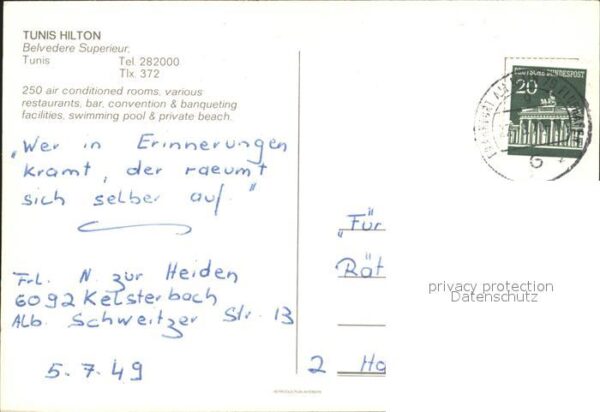 TUNIS HILTON
Belvedere Superieur,
Tunis Tel. 282000
Tlx. 372
250 air conditioned rooms, various
restaurants, bar, convention & banqueting
facilities, swimming pool & private beach.
„Wer in Erinnerungen
kramt, der raeumt
sich selber auf."
Frl. N. zur Heiden
6092 Kelsterbach
Alb. Schweitzer Str. 13
5.7.49
DEUTSCHE BUNDESPOST
20
„Für
Rät
2 Ha
privacy protection
Datenschutz